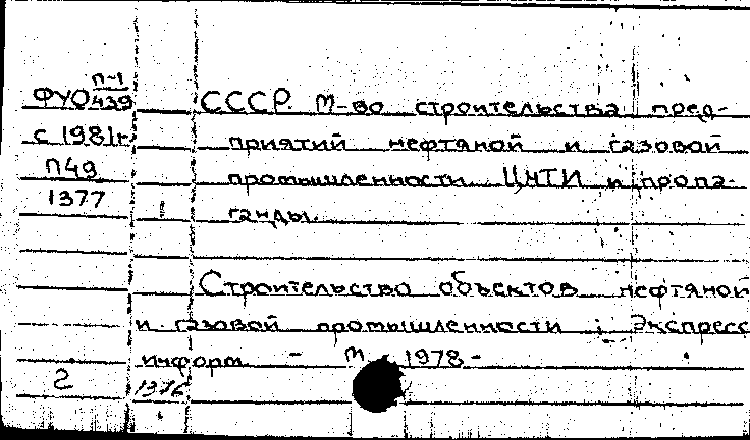 П-1
ФУО439
с 1981г.
П49
1377
1
СССР. М-во строительства пред-
приятий нефтяной и газовой
промышленности. ЦНТИ и пропа-
ганды.
Строительство объектов нефтяной
и газовой промышленности : Экспресс
информ. - М., 1978-
2